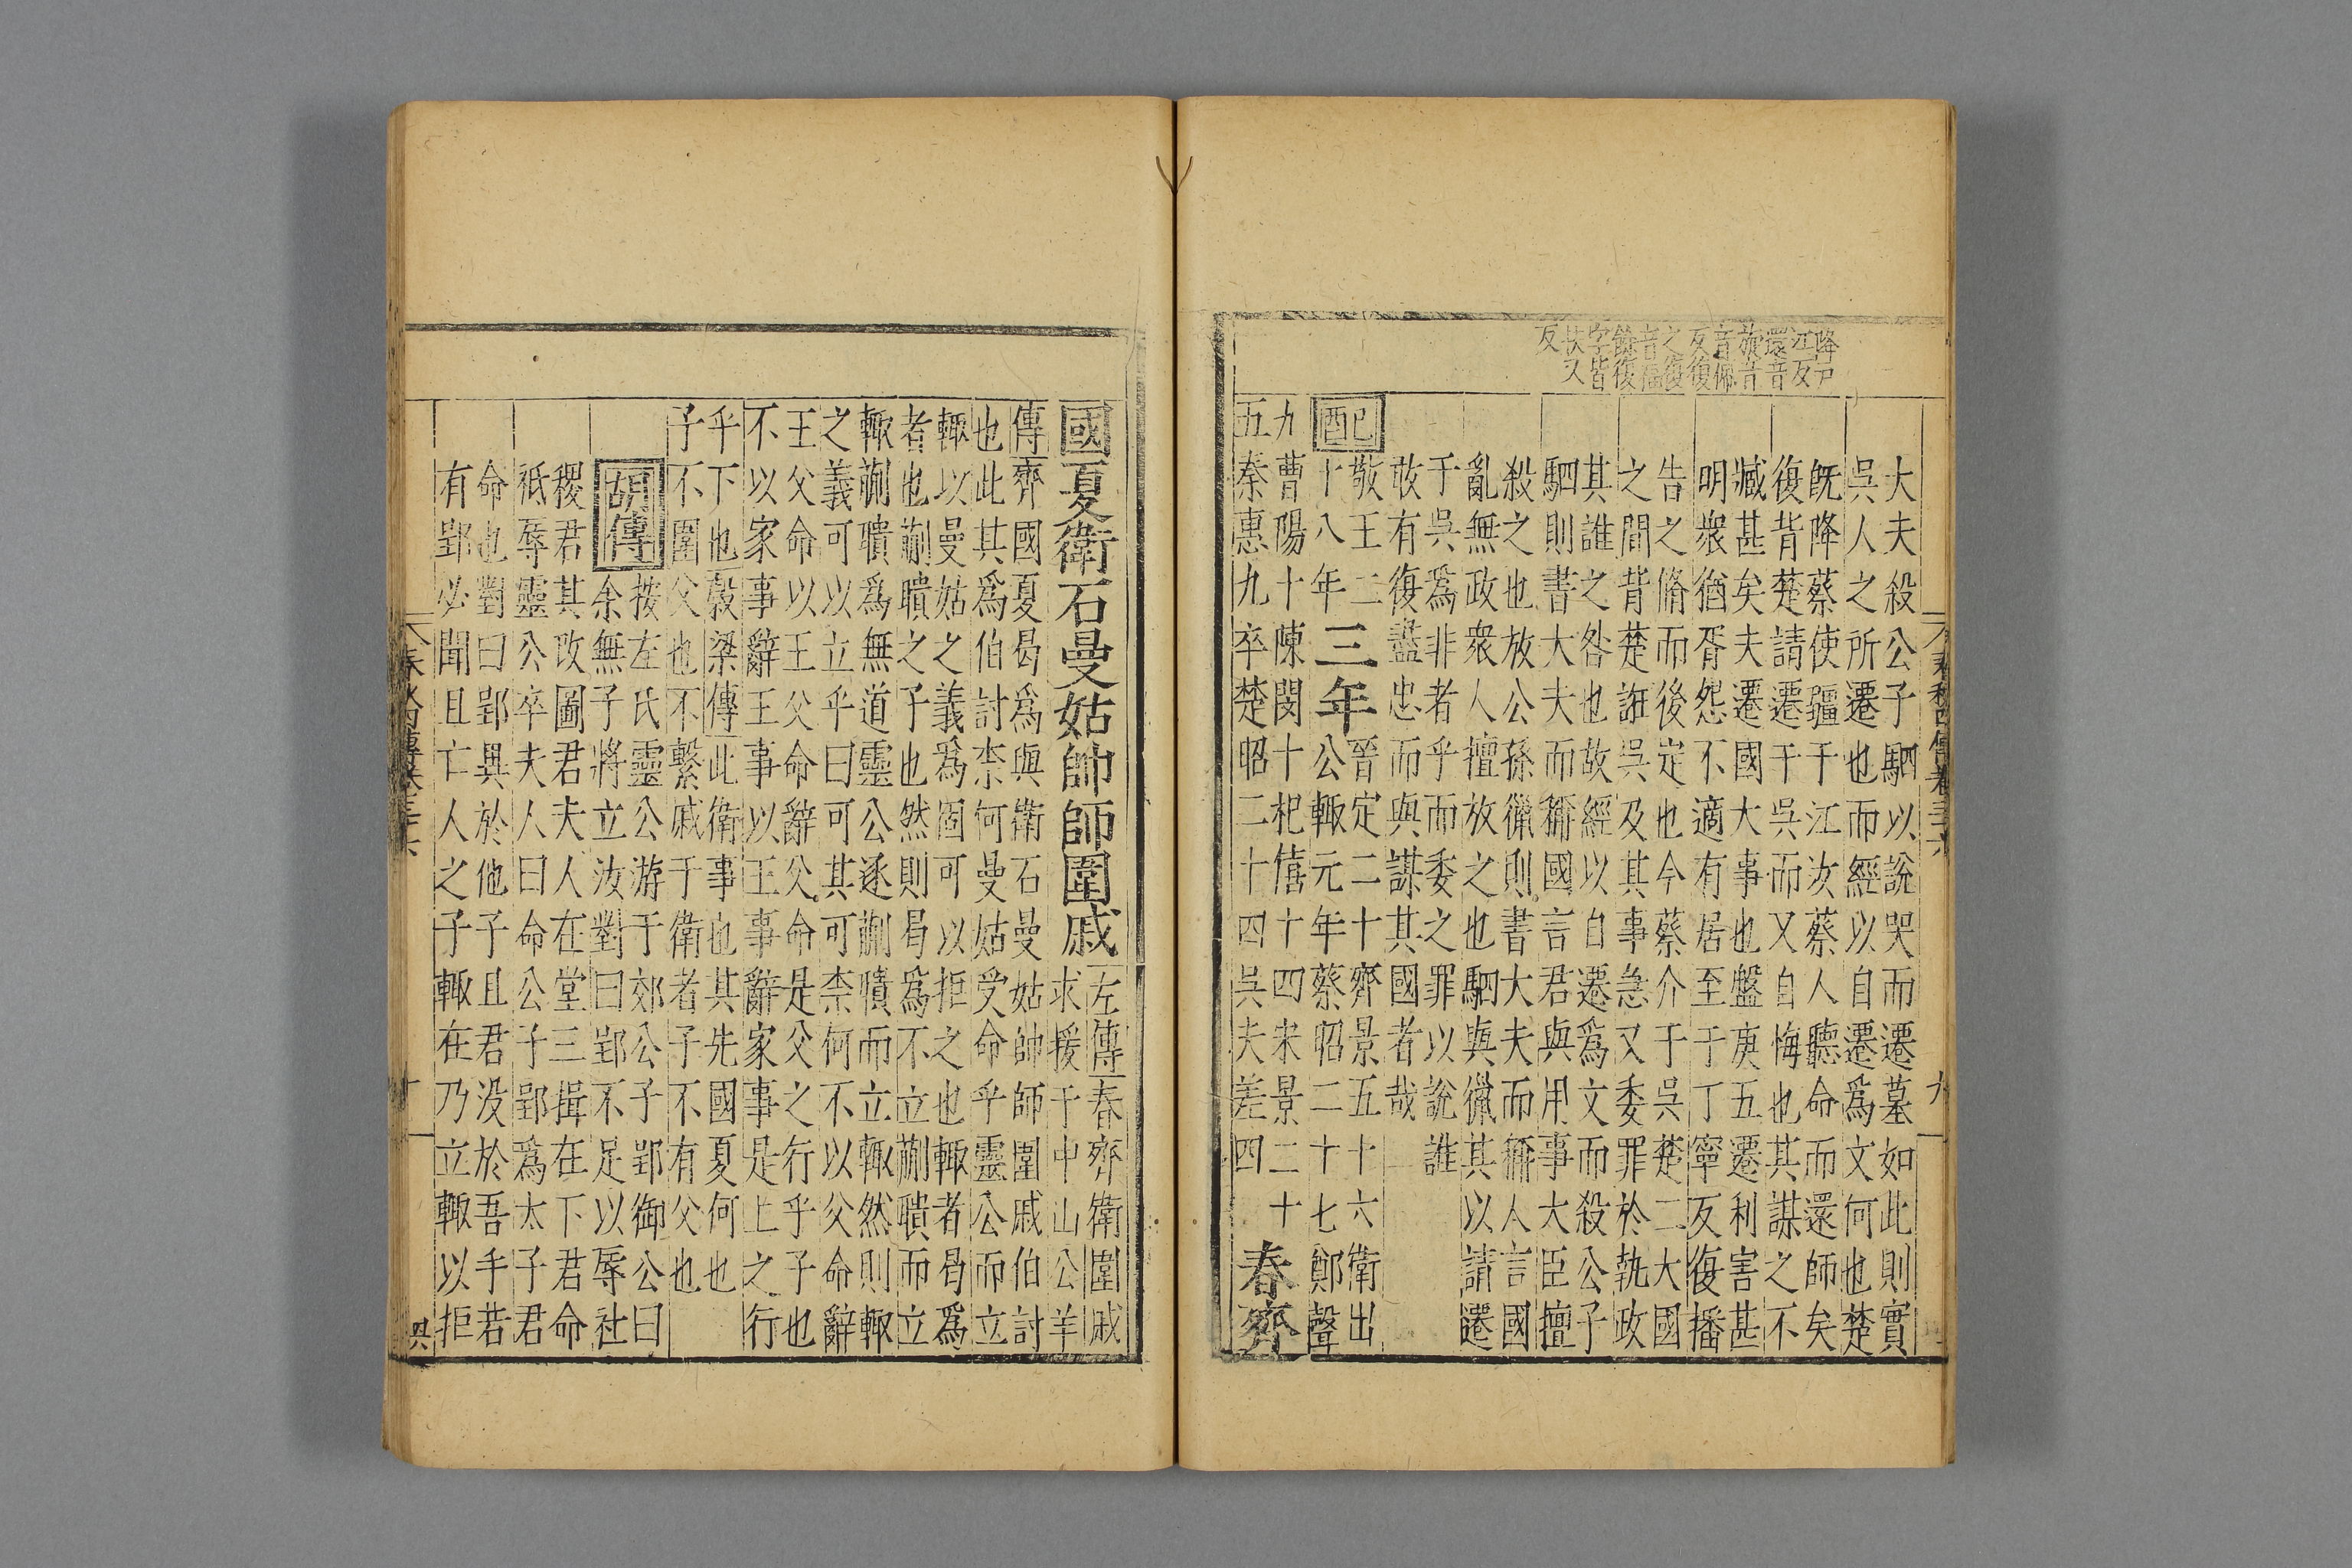 降戸
江反
環音
旅音
音佩
反復
之復
音福
餘復
字皆
扶又
反
春秋四傳卷三十六 九
大夫殺公子駟以說哭而遷墓如此則實
吳人之所遷也而經以自遷爲文何也楚
旣降蔡使疆于江汝蔡人聽命而還師矣
復背楚請遷于吳而又自悔也其謀之不
臧甚矣夫遷國大事也盤庚五遷利害甚
明衆猶胥怨不適有居至于丁寧反復播
告之脩而後定也今蔡介于吳楚二大國
之間背楚誑吳及其事急又委罪於執政
其誰之咎也故經以自遷爲文而殺公子
駟則書大夫而稱國言君與用事大臣擅
殺之也放公孫獵則書大夫而稱人言國
亂無政衆人擅放之也駟與獵其以請遷
于吳爲非者乎而委之罪以說誰
敢有復盡忠而與謀其國者哉
己酉
敬王二
十八年
三年
晉定二十齊景五十六衛出
公輒元年蔡昭二十七鄭聲
九曹陽十陳閔十杞僖十四宋景二十
五秦惠九卒楚昭二十四吳夫差四
春齊
國夏衛石曼姑帥師圍戚
左傳春齊衛圍戚
求援于中山公羊
傳齊國夏曷爲與衛石曼姑帥師圍戚伯討
也此其爲伯討柰何曼姑受命乎靈公而立
輒以曼姑之義爲固可以拒之也輒者曷爲
者也蒯聵之子也然則曷爲不立蒯聵而立
輒蒯聵爲無道靈公逐蒯聵而立輒然則輒
之義可以立乎曰可其可柰何不以父命辭
王父命以王父命辭父命是父之行乎子也
不以家事辭王事以王事辭家事是上之行
乎下也穀梁傳此衛事也其先國夏何也
子不圍父也不繫戚于衛者子不有父也
胡傳
按左氏靈公游于郊公子郢御公曰
余無子將立汝對曰郢不足以辱社
稷君其改圖君夫人在堂三揖在下君命
祗辱靈公卒夫人曰命公子郢爲太子君
命也對曰郢異於他子且君没於吾手若
有郢必聞且亡人之子輒在乃立輒以拒
春秋四傳卷三十六 十